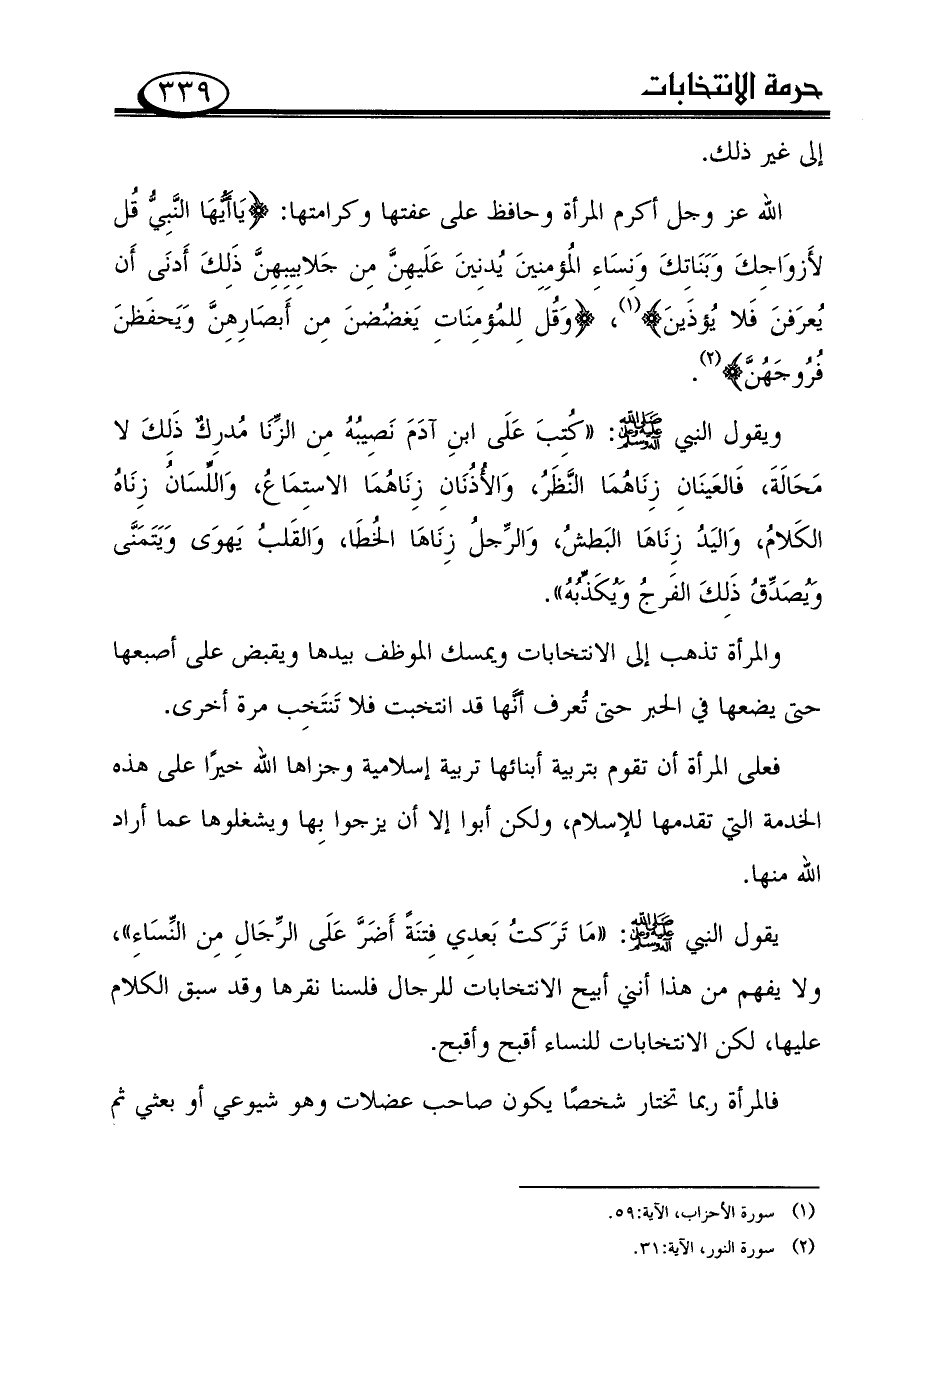 حرمة الانتخابات
٣٣٩
إلى غير ذلك.
الله عز وجل أكرم المرأة وحافظ على عفتها وكرامتها: ﴿يَاأَيُّهَا النَّبِيُّ قُل
لأَزوَاجِكَ وَبَنَاتِكَ وَنِسَاءِ المُؤمِنِينَ يُدنِينَ عَلَيهِنَّ مِن جَلابِيبِهِنَّ ذَلِكَ أَدنَى أَن
يُعرَفنَ فَلا يُؤذَينَ﴾(١)، ﴿وَقُل لِلمُؤمِنَاتِ يَغضُضنَ مِن أَبصَارِهِنَّ وَيَحفَظنَ
فُرُوجَهُنَّ﴾(٢).
ويقول النبي ﷺ: «كُتِبَ عَلَى ابنِ آدَمَ نَصِيبُهُ مِن الزِّنَا مُدرِكٌ ذَلِكَ لا
مَحَالَةَ، فَالعَينَانِ زِنَاهُمَا النَّظَرُ، وَالأُذُنَانِ زِنَاهُمَا الاستِمَاعُ، وَاللِّسَانُ زِنَاهُ
الكَلامُ، وَاليَدُ زِنَاهَا البَطشُ، وَالرِّجلُ زِنَاهَا الخُطَا، وَالقَلبُ يَهوَى وَيَتَمَنَّى
وَيُصَدِّقُ ذَلِكَ الفَرجُ وَيُكَذِّبُهُ».
والمرأة تذهب إلى الانتخابات ويمسك الموظف بيدها ويقبض على أصبعها
حتى يضعها في الحبر حتى تُعرف أنَّها قد انتخبت فلا تَنتَخِب مرة أخرى.
فعلى المرأة أن تقوم بتربية أبنائها تربية إسلامية وجزاها الله خيرًا على هذه
الخدمة التي تقدمها للإسلام، ولكن أبوا إلا أن يزجوا بِها ويشغلوها عما أراد
الله منها.
يقول النبي ﷺ: «مَا تَرَكتُ بَعدِي فِتنَةً أَضَرَّ عَلَى الرِّجَالِ مِن النِّسَاءِ»،
ولا يفهم من هذا أنني أبيح الانتخابات للرجال فلسنا نقرها وقد سبق الكلام
عليها، لكن الانتخابات للنساء أقبح وأقبح.
فالمرأة ربما تختار شخصًا يكون صاحب عضلات وهو شيوعي أو بعثي ثم
(١) سورة الأحزاب، الآية:٥٩.
(٢) سورة النور، الآية:٣١.